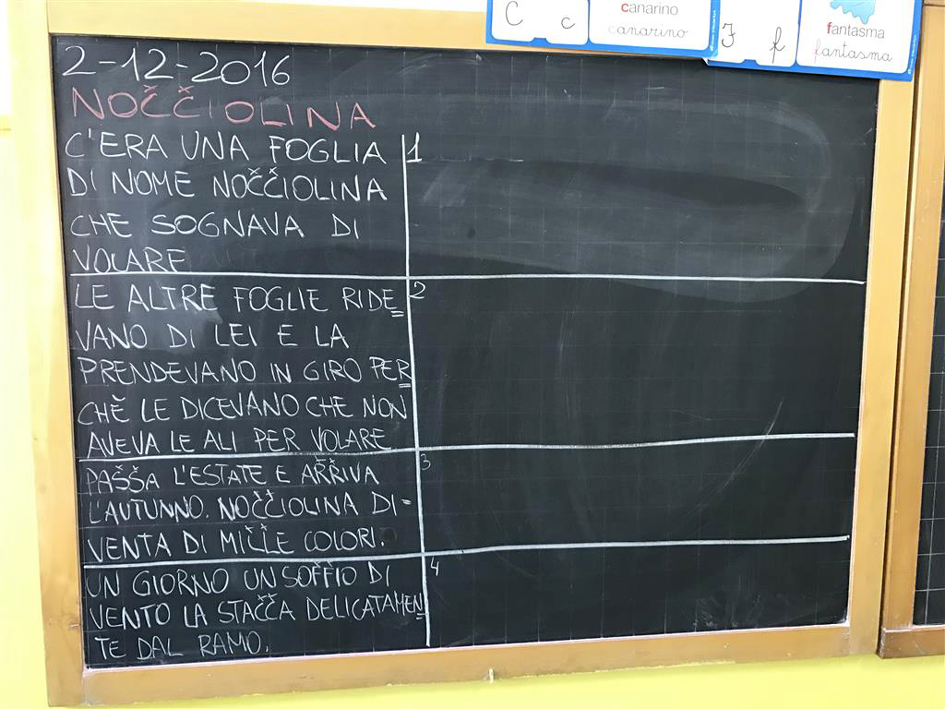 C c
canarino
canarino
F f
fantasma
fantasma
2-12-2016
NOČČIOLINA
C'ERA UNA FOGLIA
DI NOME NOČČIOLINA
CHE SOGNAVA DI
VOLARE
1
LE ALTRE FOGLIE RIDE=
VANO DI LEI E LA
PRENDEVANO IN GIRO PER=
CHĚ LE DICEVANO CHE NON
AVEVA LE ALI PER VOLARE
2
PAŠŠA L'ESTATE E AŘŘIVA
L'AUTUNNO. NOČČIOLINA DI=
VENTA DI MIĽĽE COLORI.
3
UN GIORNO UN SOFFIO DI
VENTO LA STAČČA DELICATAMEN=
TE DAL RAMO.
4